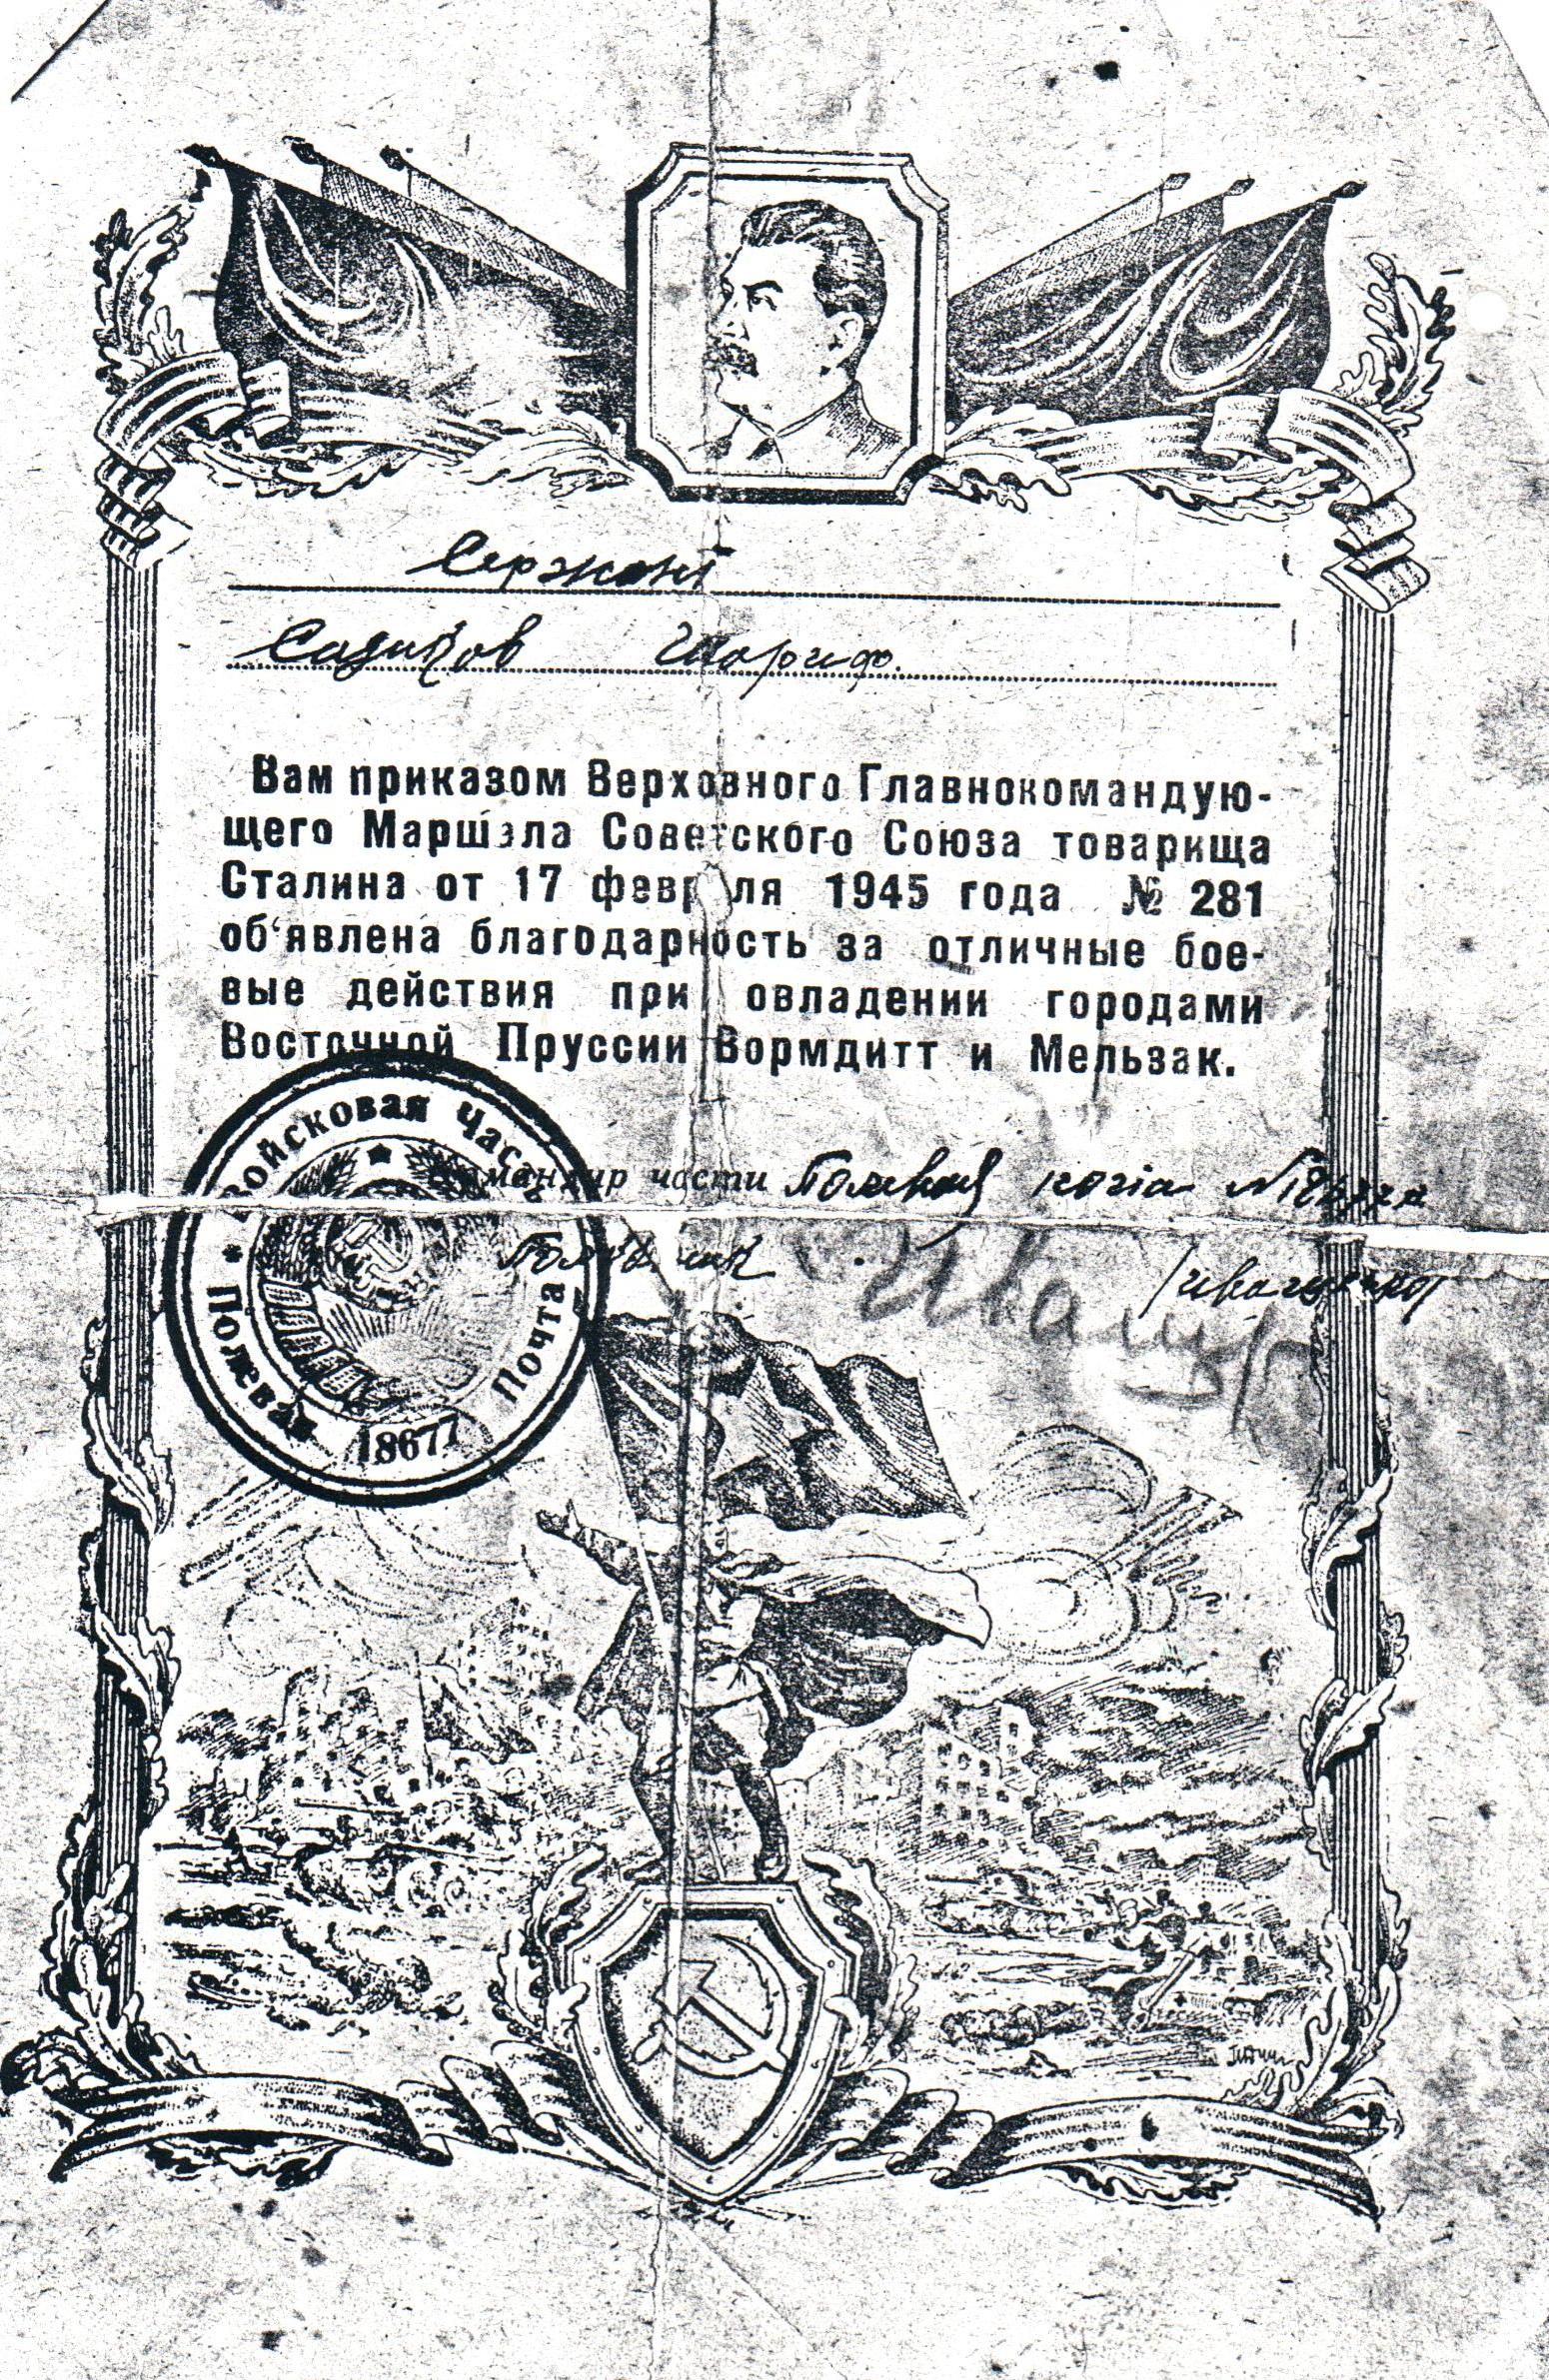 Сержант
Садиков Шариф.
Вам приказом Верховного Главнокомандую-
щего Маршала Советского Союза товарища
Сталина от 17 февраля 1945 года № 281
об‘явлена благодарность за отличные бое-
вые действия при овладении городами
Восточной Пруссии Вормдитт и Мельзак.
Командир части Полевая почта № 18677
Полковник
Войсковая Часть
* Полевая Почта
18677